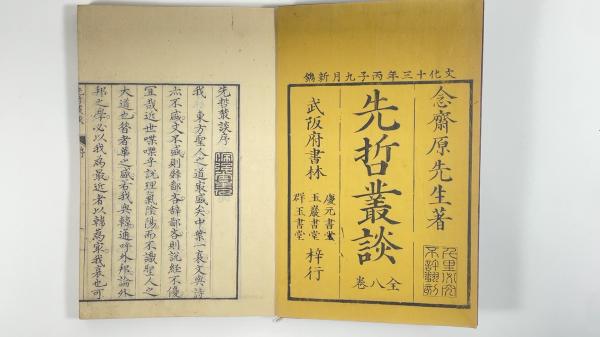 文化十三年丙子九月新鐫
念齋原先生著
先哲叢談
全八卷
武阪府書林
慶元書堂
玉巖書堂
群玉書堂
梓行
先哲叢談序
我 東方聖人之道寂盛矣中葉一衰文與詩
六不盛文不盛則辭鄙吝辭鄙吝則說經不優
宜哉近世喋喋乎說理氣陰陽而不識聖人之
大道也昔者華之盛右我與韓通呼外邦論外
邦之學必以我為最近者以韓為寂我衰也可